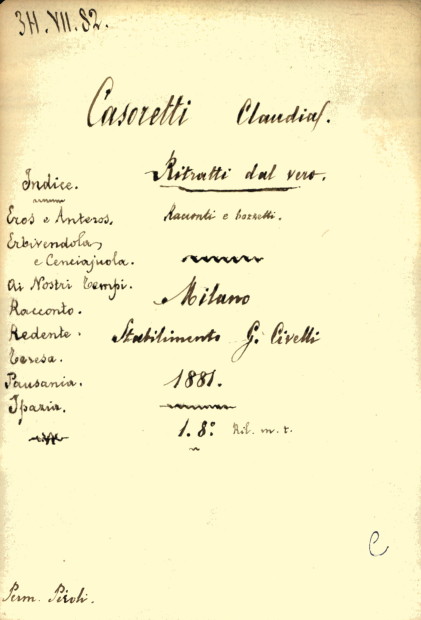 3H.VII.82.
Casoretti Claudia.
Ritratti dal vero.
Racconti e bozzetti.
Indice.
Eros e Anteros.
Erbivendola,
e Cenciajuola.
Ai Nostri Tempi.
Racconto.
Redente.
Teresa.
Pausania.
Ipazia.
Milano
Stabilimento G. Civelli
1881.
1. 8.° m. t.
C
Perm.